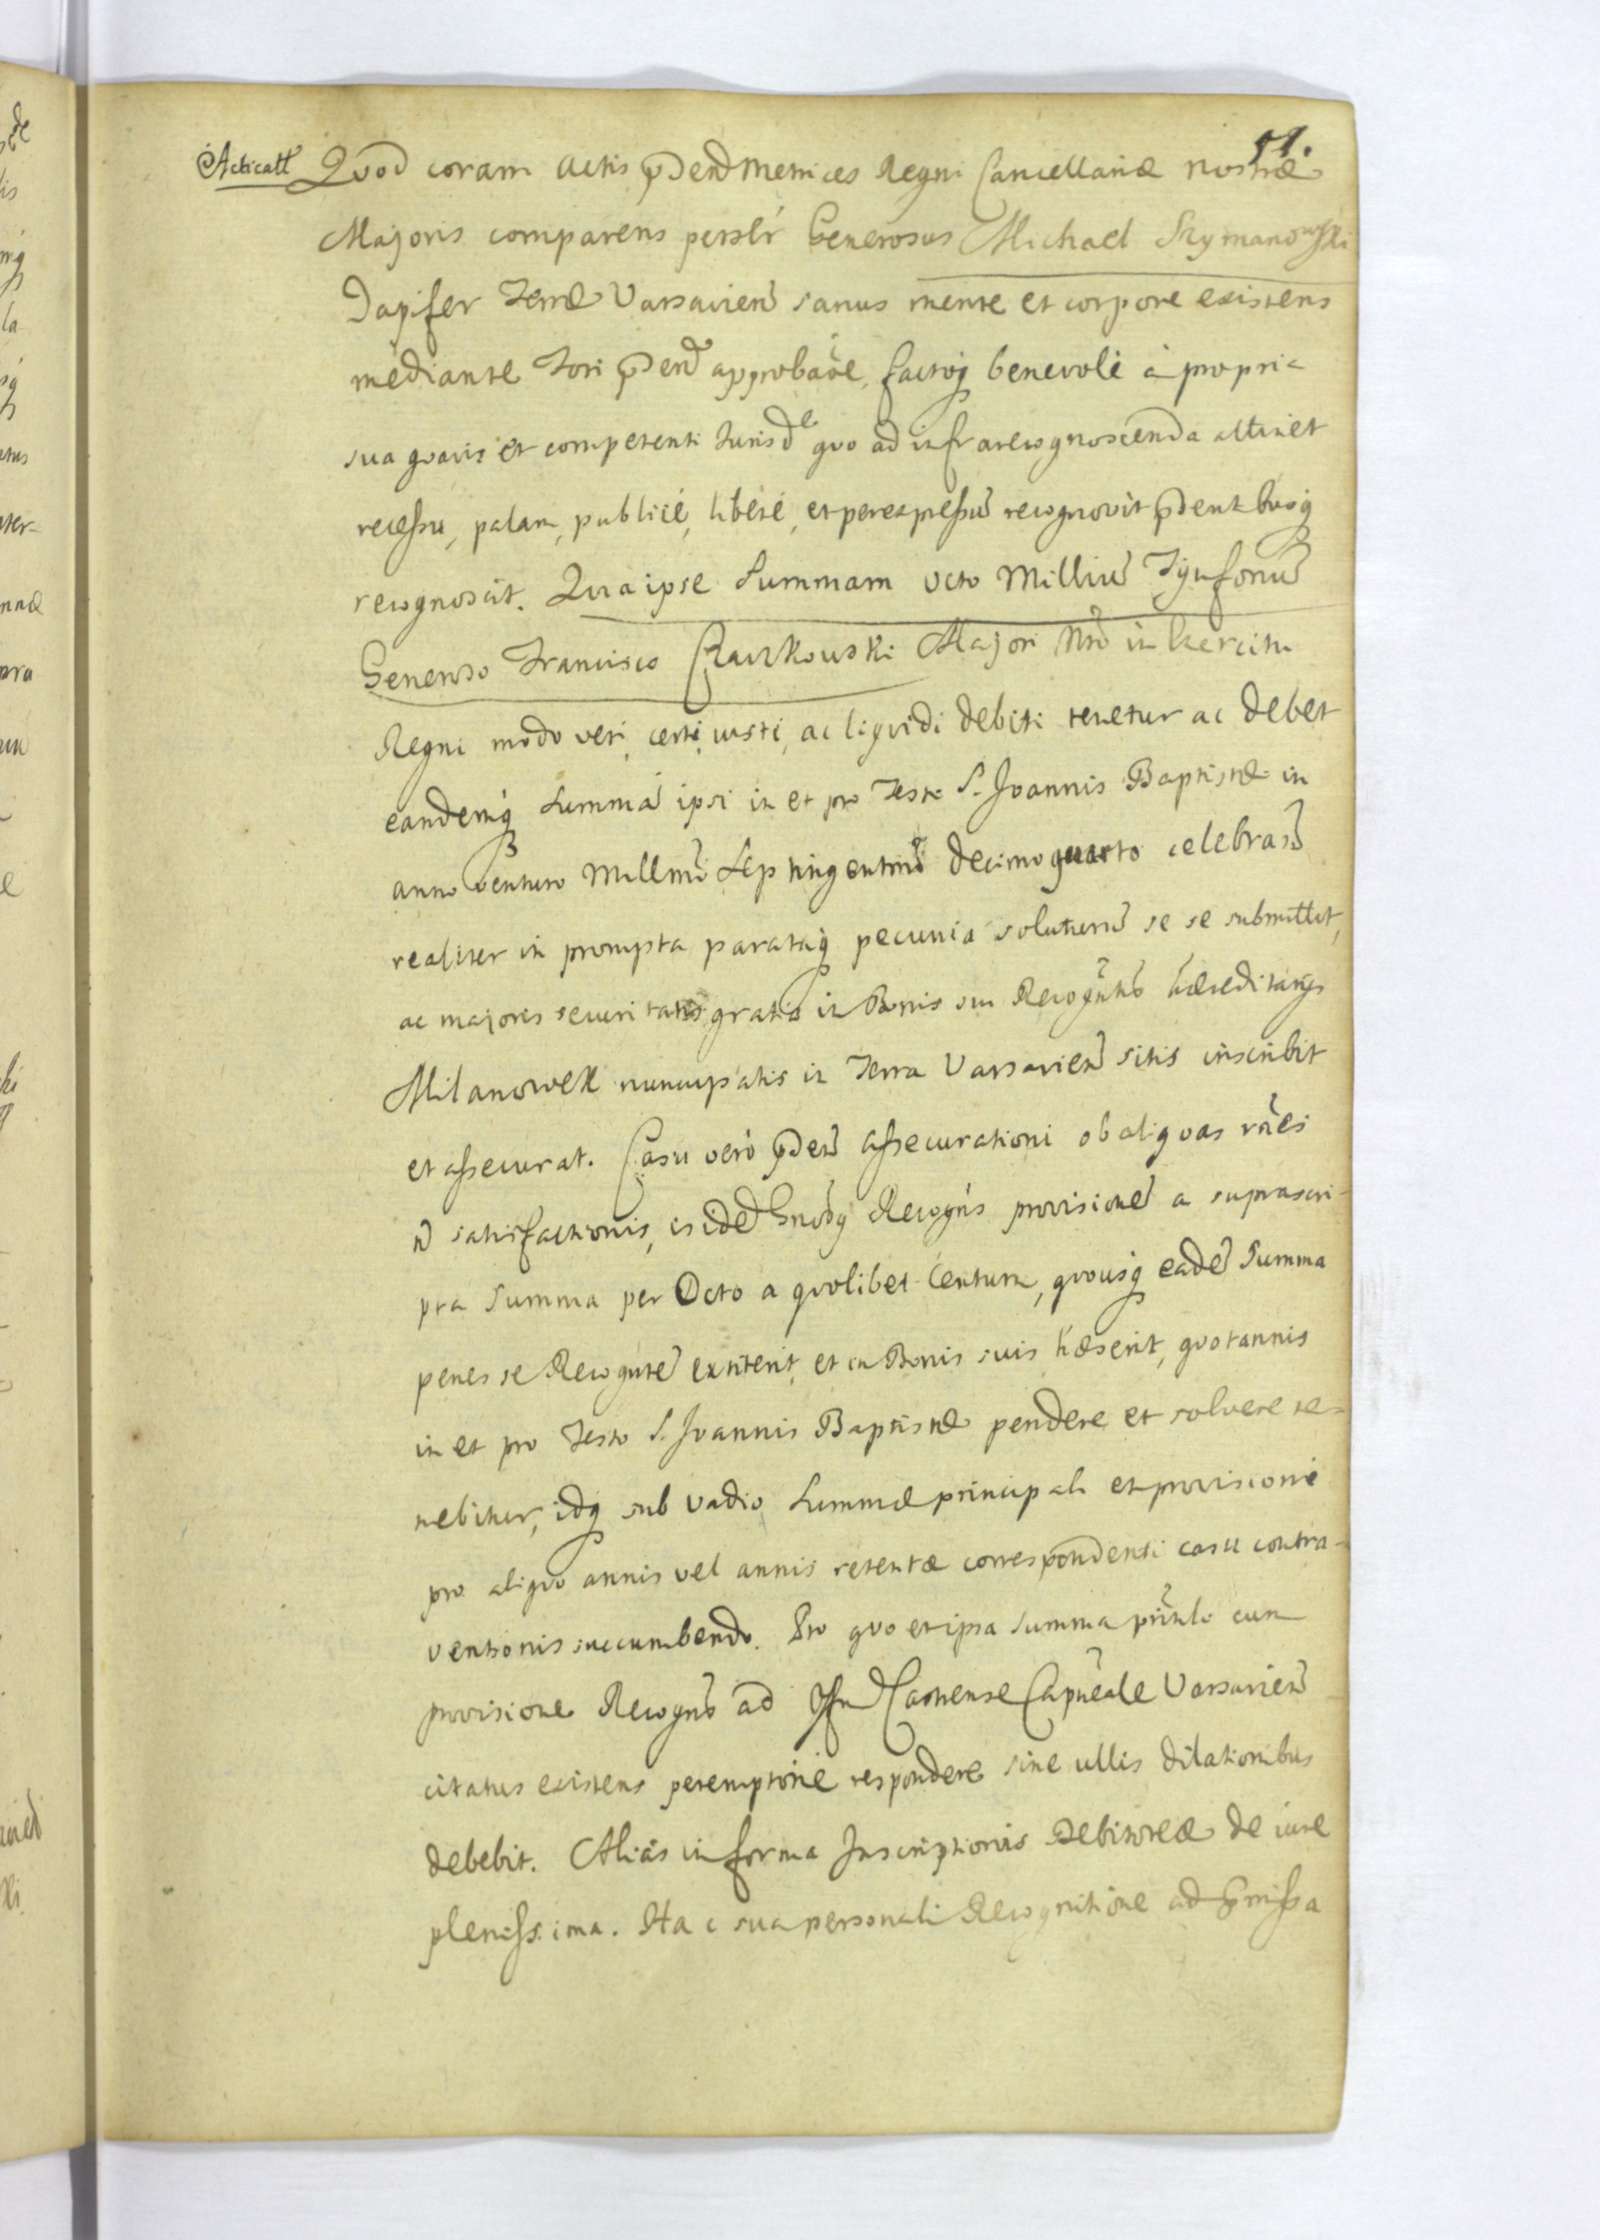 51.
Acticatt Quod coram Actis p̃dend Metrices Regni Cancellariæ nostræ
Majoris comparens persłr Generosus Michael Szymanowski
Dapifer Terræ Varsavien̄ sanus mente et corpore existens
mediante Fori p̃den̄d approbãõe, factoq̨ benevolè à propria
sua quavis et competenti Jurisdē quo ad infrarecognoscenda attinet
recessu, palam, publicè, liberè, et per expressū recognovit p̃dentibusq̨
recognoscit. Quia ipse Summam Octo Milliū Tÿnfonū
Generoso Francisco Czaczkowski Majori Nrõ in Exercitu
Regni modo veri, certi, iusti, ac liqvidi debiti tenetur ac debet
eandemq̨ Summã ipsi in et pro Festo S. Joannis Baptistæ in
anno venturo Millmõ Septingentmõ decimo quarto celebran̄
realiter in prompta parataq̨ pecunia soluturū se se submittit,
ac majoris securitatis gratia in Bonis sui Recogñtis hæreditarÿs
Milanowek nuncupatis in Terra Varsavien̄ sitis inscribit
et assecurat. Casu verò p̃den̄ Assecurationi ob aliqvas rñes
ñ satisfactionis, is idē Gnrõsq̨ Recogñs provisionē a suprascri-
pta Summa per Octo a qvolibet Centum, qvousq̨ eadē Summa
penes se Recogñtē extiterit, et in Bonis suis hæserit, qvotannis
in et pro Festo S. Joannis Baptistæ pendere et solvere te-
nebitur, idq̨ sub vadio Summæ principali et provisioni
pro aliqvo annis vel annis retentæ correspondenti casu contra-
ventionis succumbendo. Pro qvo et ipsa Summa prin̄li cum
provisione Recogñs ad Castrense Capñeale Varsavien̄
citatus existens peremptoriè respondere sine ullis dilationibus
debebit. Aliàs in forma Inscriptionis Debitoreæ de iure
plenissima. Hac sua personali Recognitione ad p̃missa